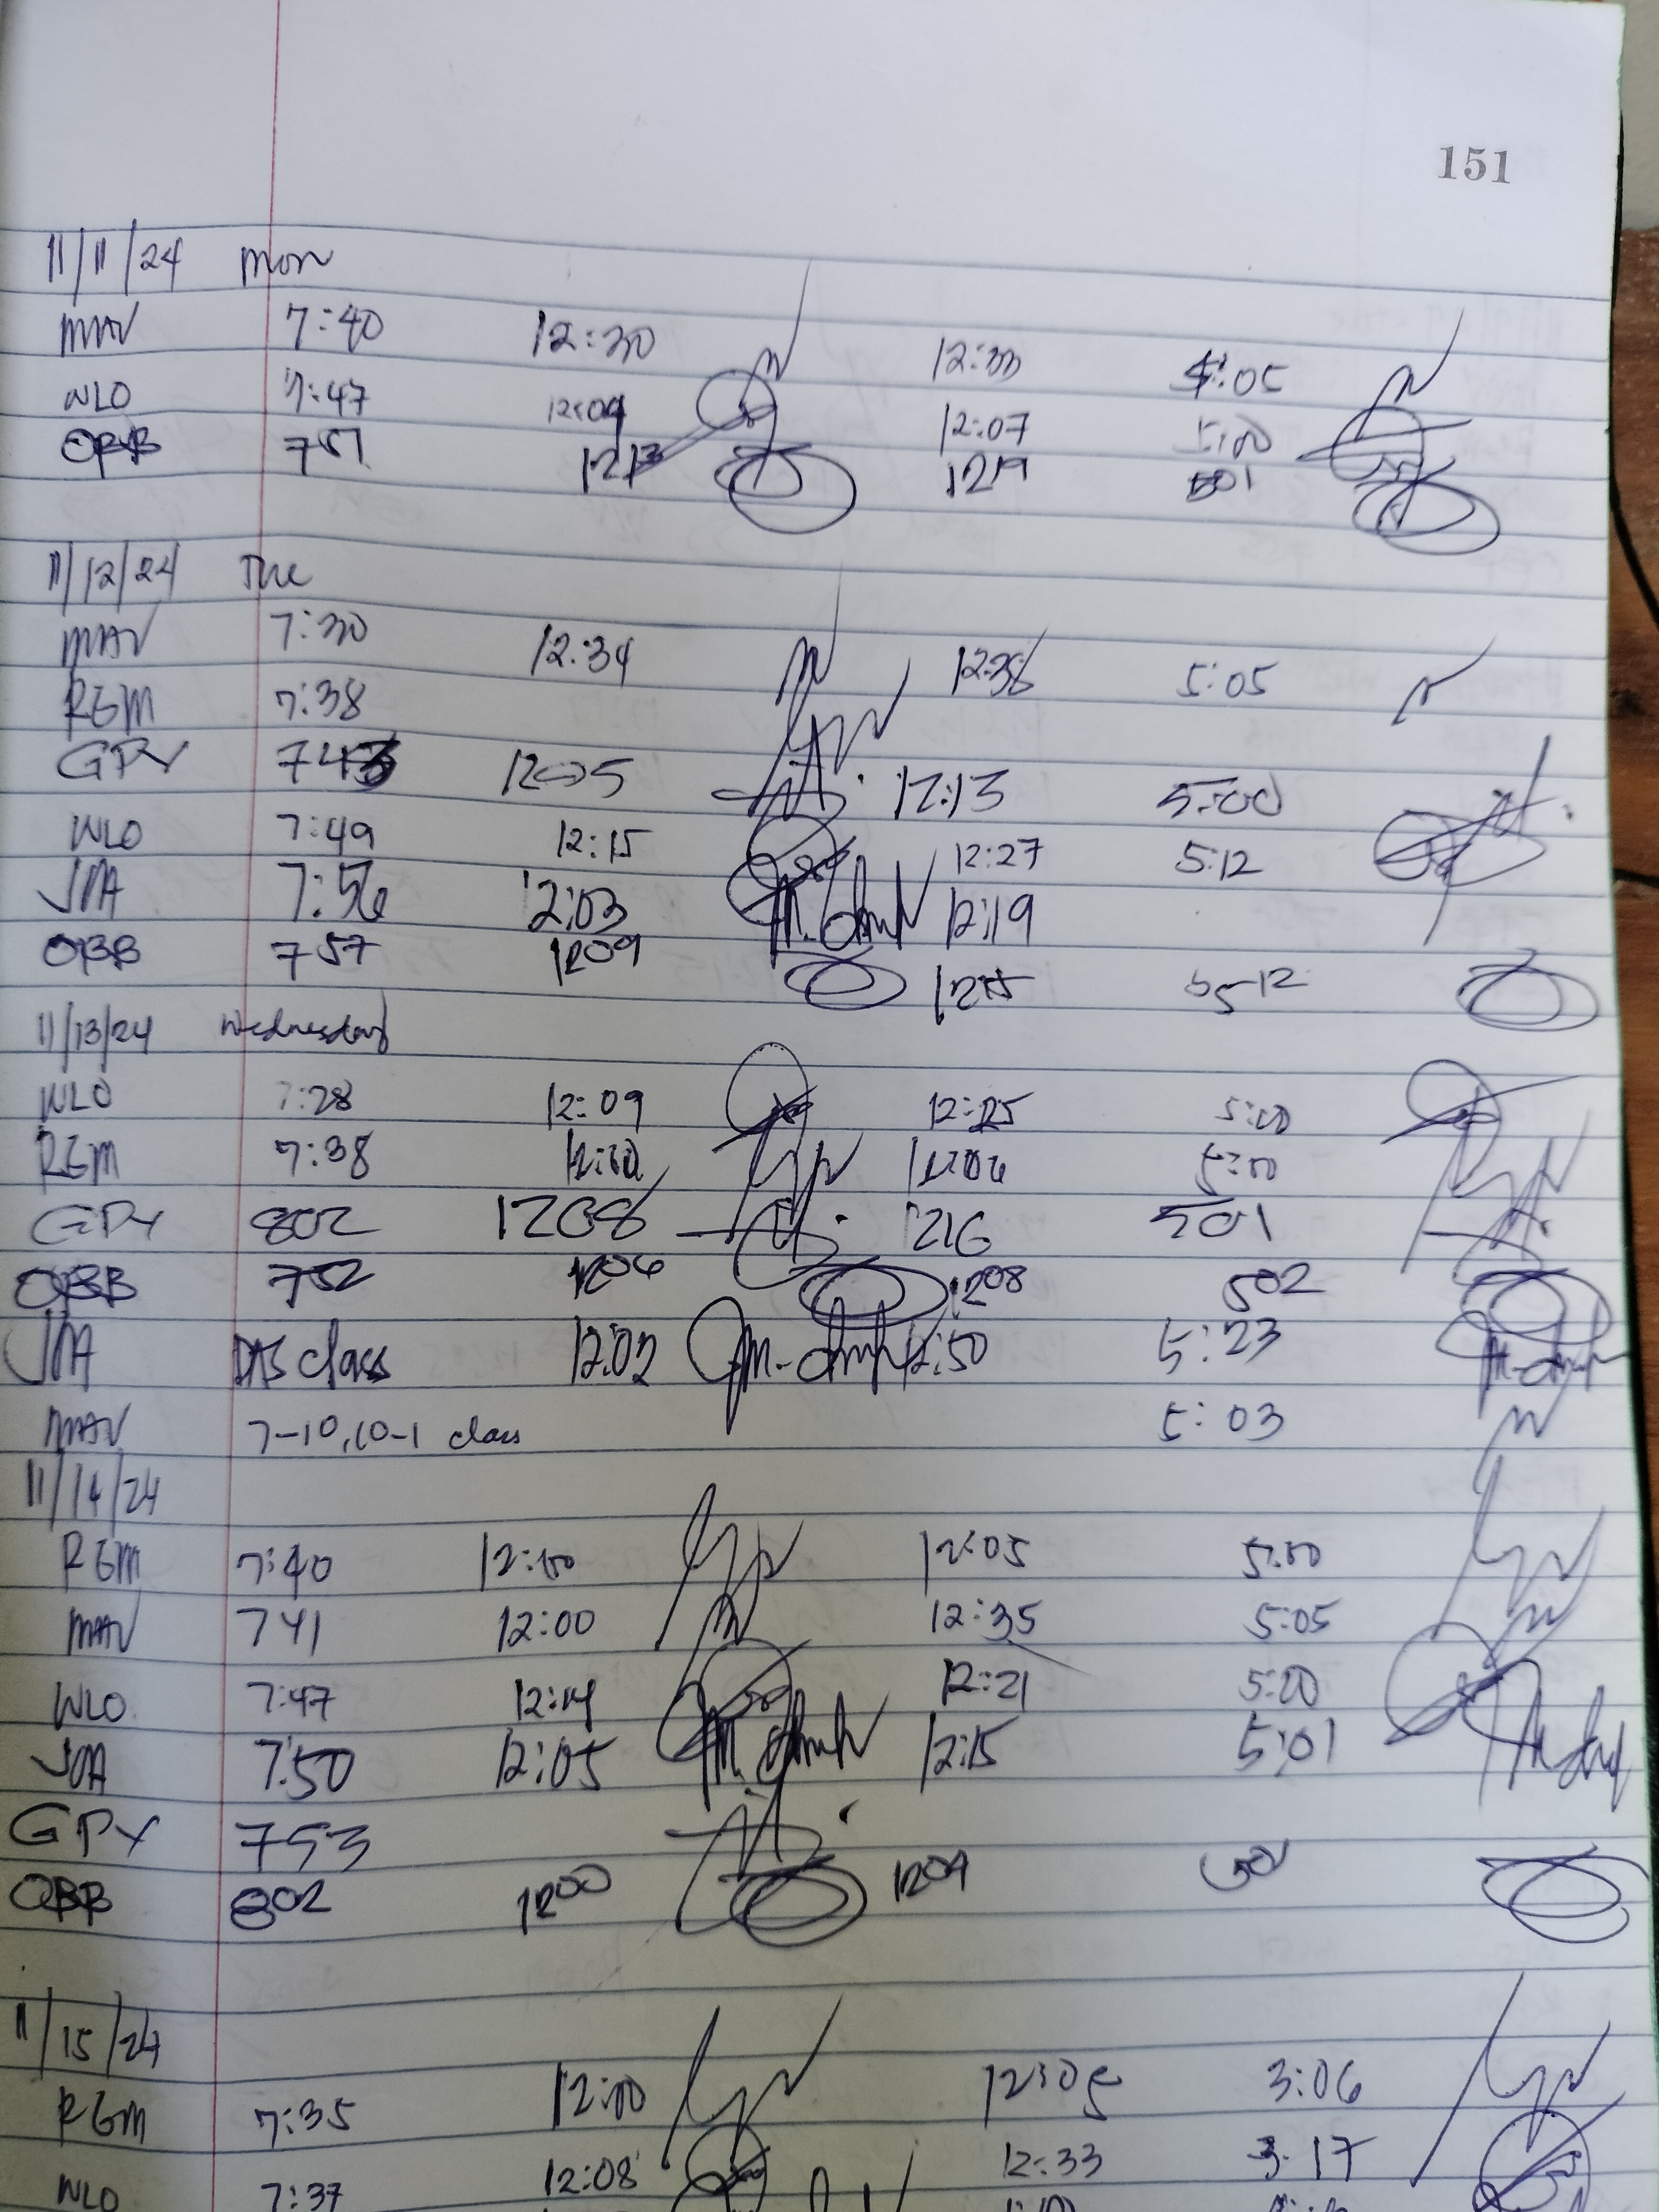 151
11/11/24 Mon
MAV 7:40 12:30 12:33 5:05
WLO 7:47 12:04 12:07 5:00
OBB 751 1213 1219 501
11/12/24 Tue
MAV 7:30 12:34 12:38 5:05
REM 7:38
GPY 743 12:05 12:13 5:00
WLO 7:49 12:15 12:27 5:12
JMA 7:56 12:03 12:19
OBB 757 1209 1215 512
11/13/24 Wednesday
WLO 7:28 12:09 12:25 5:00
REM 7:38 12:06 5:00
GPY 802 1208 1216 501
OBB 752 1206 1208 502
JMA class 12:02 12:50 5:23
MAV 7-10, 10-1 class 5:03
11/14/24
REM 7:40 12:00 12:05 5:00
MAV 741 12:00 12:35 5:05
WLO 7:47 12:14 12:21 5:00
JMA 7:50 12:05 12:15 5:01
GPY 753
OBB 802 1200 1209
11/15/24
REM 7:35 12:00 12:05 3:06
WLO 7:37 12:08 12:33 3:17